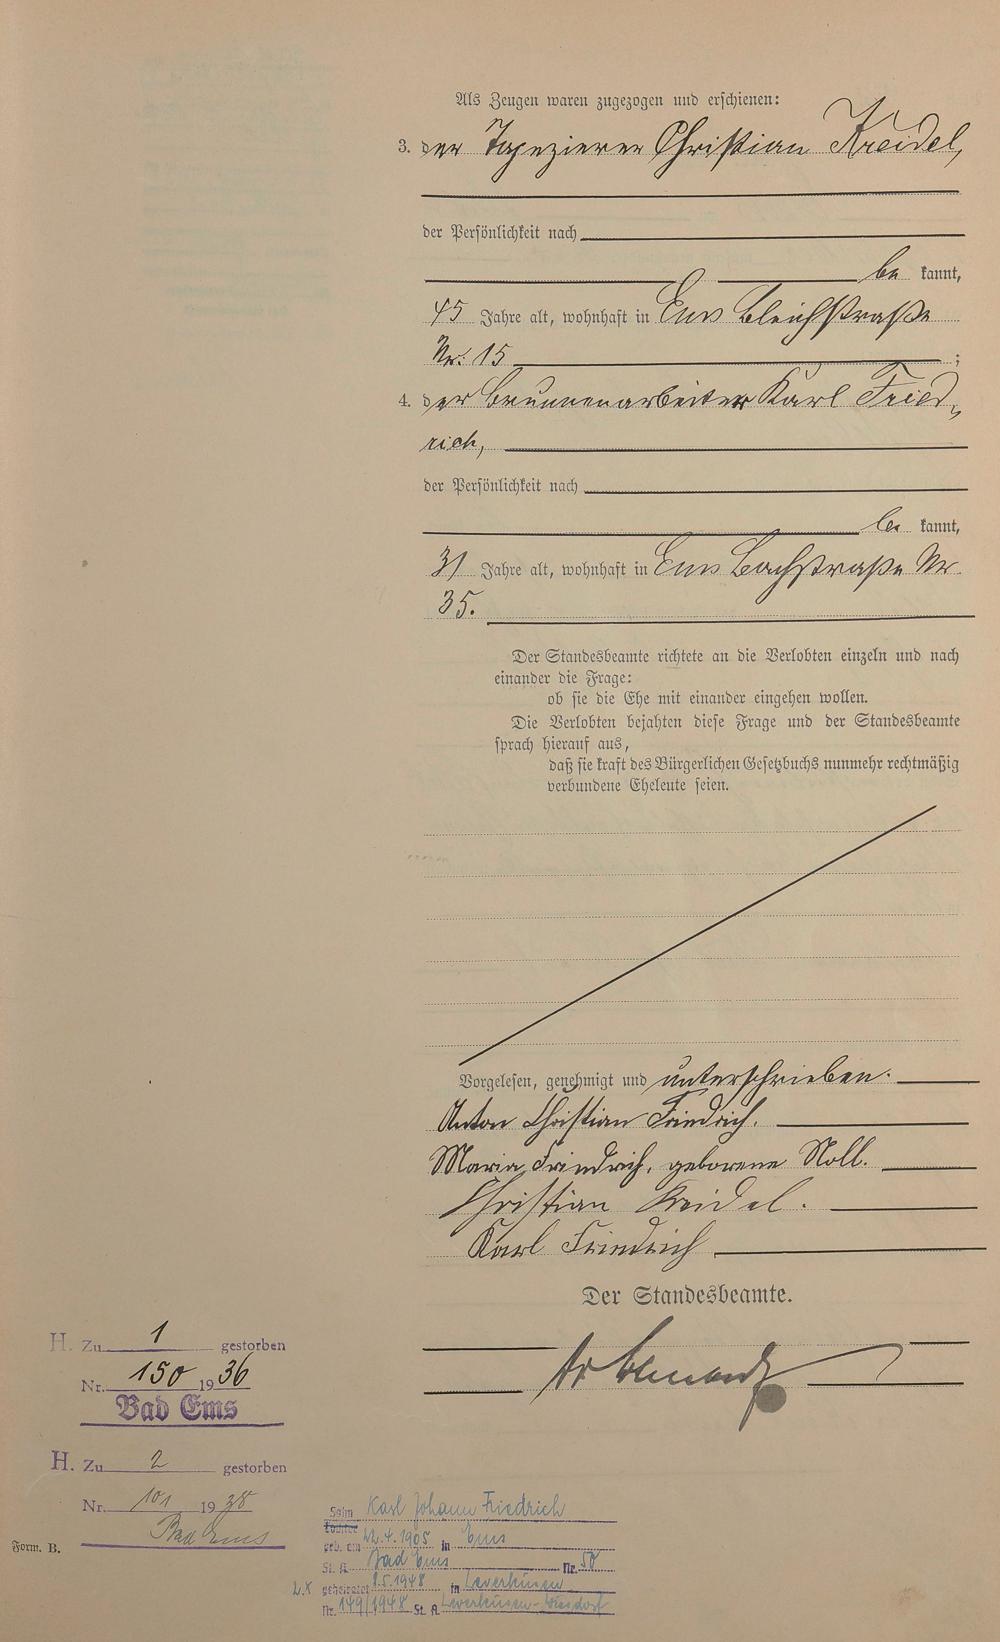 Als Zeugen waren zugezogen und erschienen:
3. der Tapezierer Christian Kreidel,
der Persönlichkeit nach
be kannt,
45 Jahre alt, wohnhaft in Ems Bleichstraße
Nr. 15 ;
4. der Brunnenarbeiter Karl Fried-
rich,
der Persönlichkeit nach
be kannt,
31 Jahre alt, wohnhaft in Ems Bachstraße Nr.
35.
Der Standesbeamte richtete an die Verlobten einzeln und nach
einander die Frage:
ob sie die Ehe mit einander eingehen wollen.
Die Verlobten bejahten diese Frage und der Standesbeamte
sprach hierauf aus,
daß sie kraft des Bürgerlichen Gesetzbuchs nunmehr rechtmäßig
verbundene Eheleute seien.
Vorgelesen, genehmigt und unterschrieben.
Anton Christian Friedrich.
Maria Friedrich, geborene Noll.
Christian Kreidel.
Karl Friedrich
Der Standesbeamte.
H. Zu 1 gestorben
Nr. 150 1936
Bad Ems
H. Zu 2 gestorben
Nr. 101 1938
Bad Ems
Form. B.
Sohn Karl Johann Friedrich
Tochter
geb. am 22.4.1905 in Ems
St. A. Bad Ems Nr. 50
2.X geheiratet 8.5.1948 in Leverkusen
Nr. 149/1948 St. A. Leverkusen-Wiesdorf